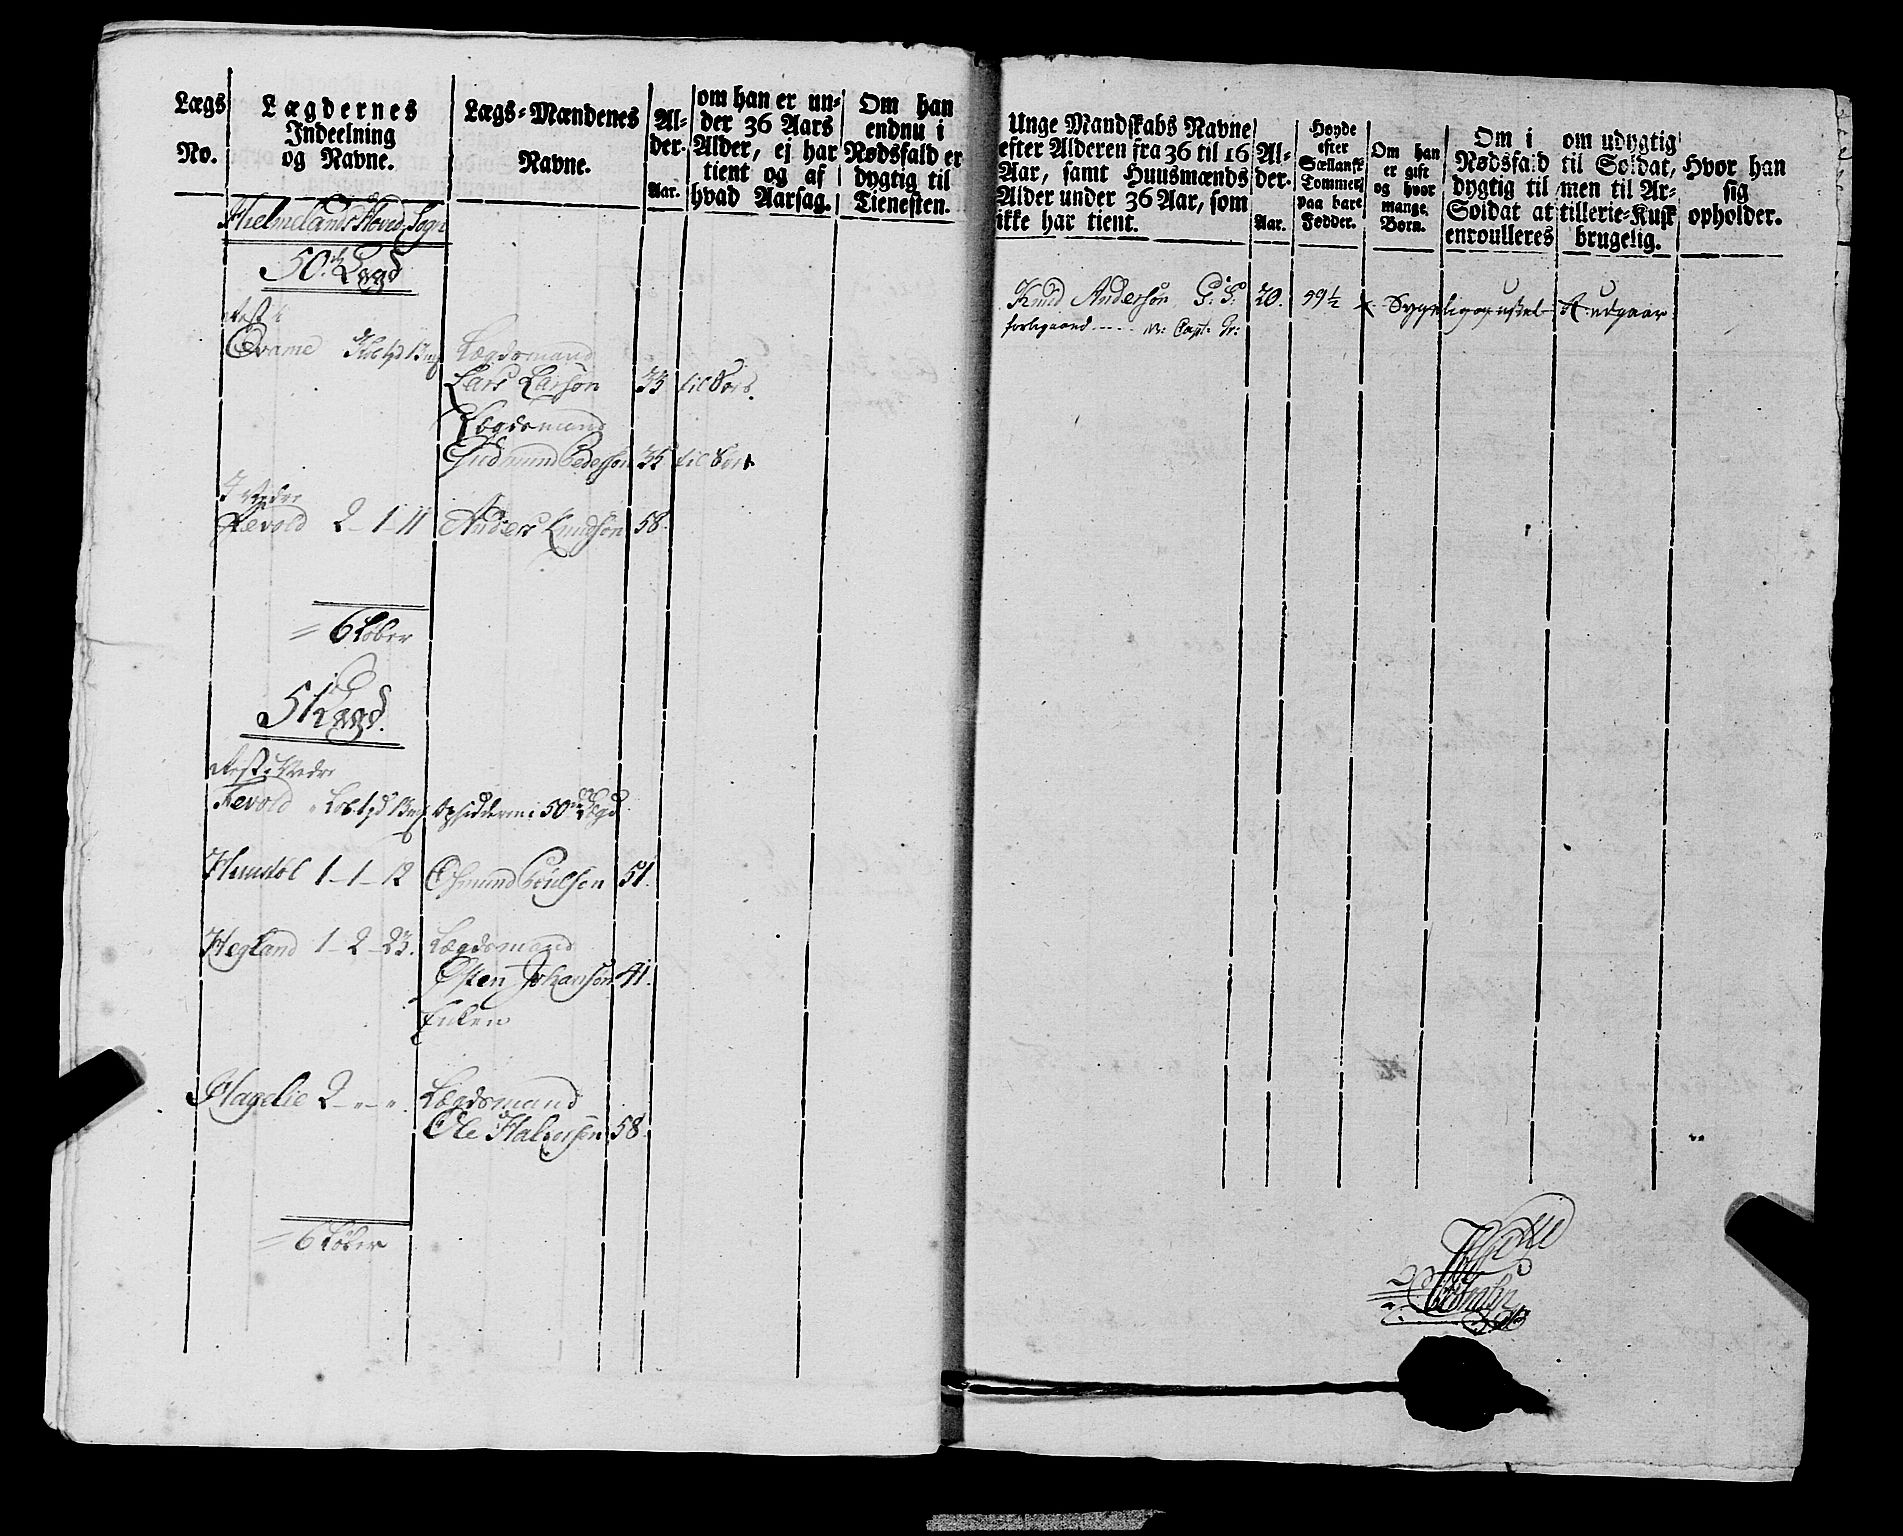 Lægs No.
Lægdernes Indeelning og Navne.
Lægs-Mændenes Navne.
Al-der. Aar.
om han er un-
der 36 Aars
Alder, ej har
tient og af
hvad Aarsag.
Om han
endnu i
Nødsfald er
dygtig til
Tienesten.
Hielmelands Hoved Sogn
50de Lægd
Lægdsmand
Lars Larsøn 33 til Sors.
Lægdsmand
Gudmund Pedersøn 35 til Sors
Fævold 2-1-11 Anders Knudsøn 58.
6 Løber
51 Lægd.
Rest i Øvdre
Fævold Løb. 1pd 13 mk Opsidderne i 50de Lægd
1-1-12 Osmund Poulsøn 51.
Hegland 1-2-23. Lægdsmand
Østen Johansøn 41.
Enken
Hagelie 2-"-". Lægdsmand
Ole Halvorsøn 58.
6 Løber
Unge Mandskabs Navne
efter Alderen fra 36 til 16
Aar, samt Huusmænds
Alder under 36 Aar, som
ikke har tient.
Al-
der.
Aar.
Høyde
efter
Sællansk
Tommer
paa bare
Fødder.
Om han
er gift
og hvor
mange
Børn.
Om i
Nødsfald
dygtig til
Soldat at
enroulleres
om udygtig
til Soldat,
men til Ar-
tillerie-Kusk
brugelig.
Hvor han
sig
opholder.
Knud Andersøn, G: S. 20. 59 1/2 Sygelig og ussel udgaar